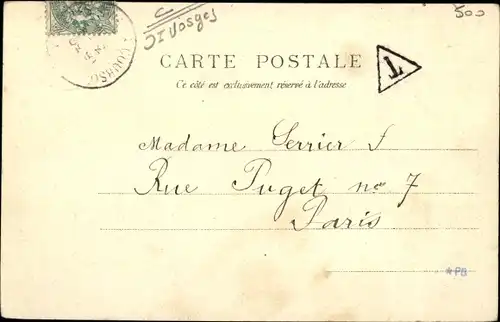 C
St Vosges
500
CARTE POSTALE
T
Ce côté est exclusivement réservé à l'adresse
Madame Serrier f
Rue Puget no 7
Paris
*PB